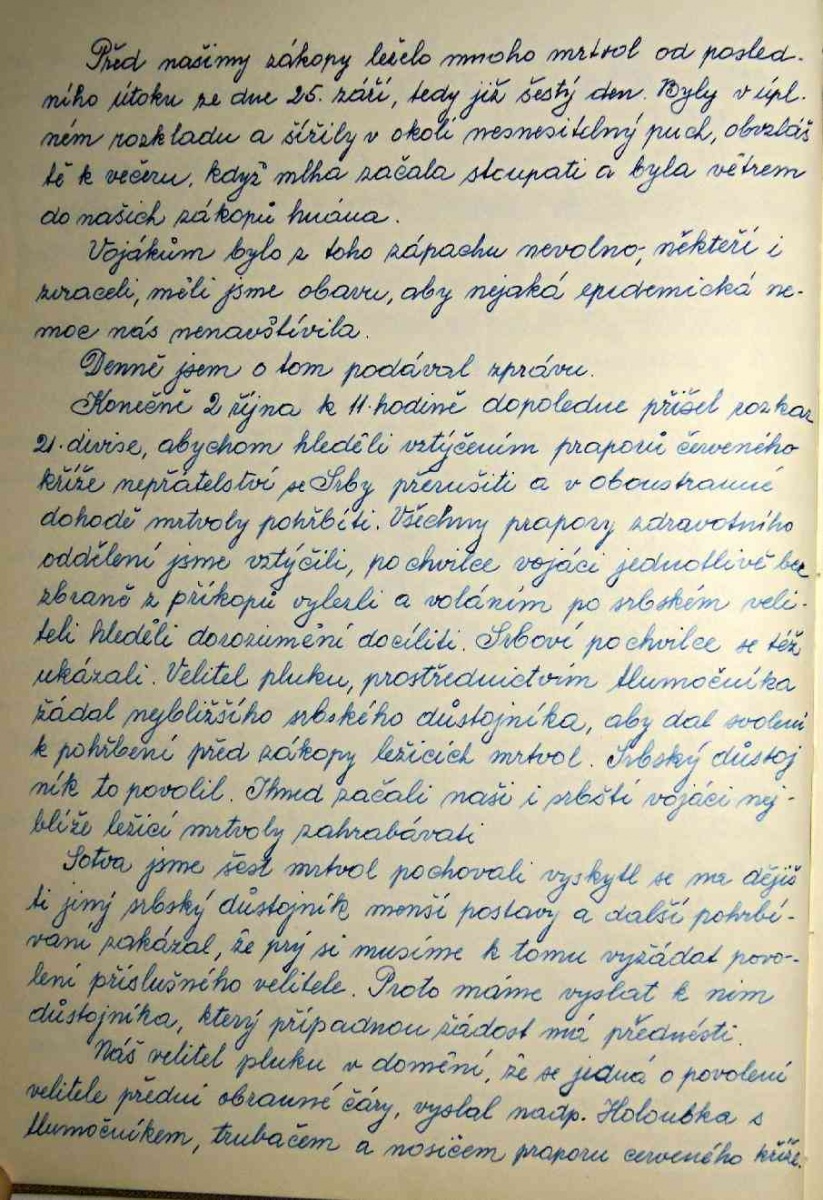 Před našimy zákopy leželo mnoho mrtvol od posled-
ního útoku ze dne 25. září, tedy již šestý den. Byly v úpl-
ném rozkladu a šířily v okolí nesnesitelný puch, obvzláš
tě k večeru, když mlha začala stoupati a byla větrem
do našich zákopů hnána.
Vojákům bylo z toho zápachu nevolno, někteří i
zvraceli, měli jsme obavu, aby nejaká epidemická ne-
moc nás nenavštívila.
Denně jsem o tom podával zprávu.
Konečně 2 října k 11. hodině dopoledne přišel rozkaz
21. divise, abychom hleděli vztýčením praporů červeného
kříže nepřátelství se Srby přerušiti a v oboustranné
dohodě mrtvoly pohřbíti. Všechny prapory zdravotního
oddělení jsme vztýčili, po chvilce vojáci jednotlivě bez
zbraně z příkopů vylezli a voláním po srbském veli-
teli hleděli dorozumění docíliti. Srbové po chvilce se též
ukázali. Velitel pluku, prostřednictvím tlumočníka
žádal nejbližšího srbského důstojníka, aby dal svolení
k pohřbení před zákopy ležících mrtvol. Srbský důstoj
ník to povolil. Ihned začali naši i srbští vojáci nej-
blíže ležící mrtvoly zahrabávati
Sotva jsme šest mrtvol pochovali vyskytl se na dějiš
ti jiný srbský důstojník menší postavy a další pohrbí-
vaní zakázal, že prý si musíme k tomu vyžádat povo-
lení příslušného velitele. Proto máme vyslat k nim
důstojníka, který případnou žádost má přednésti.
Náš velitel pluku v domění, že se jedná o povolení
velitele přední obranné čáry, vyslal nadp. Holoubka s
tlumočníkem, trubačem a nosičem praporu červeného kříže.